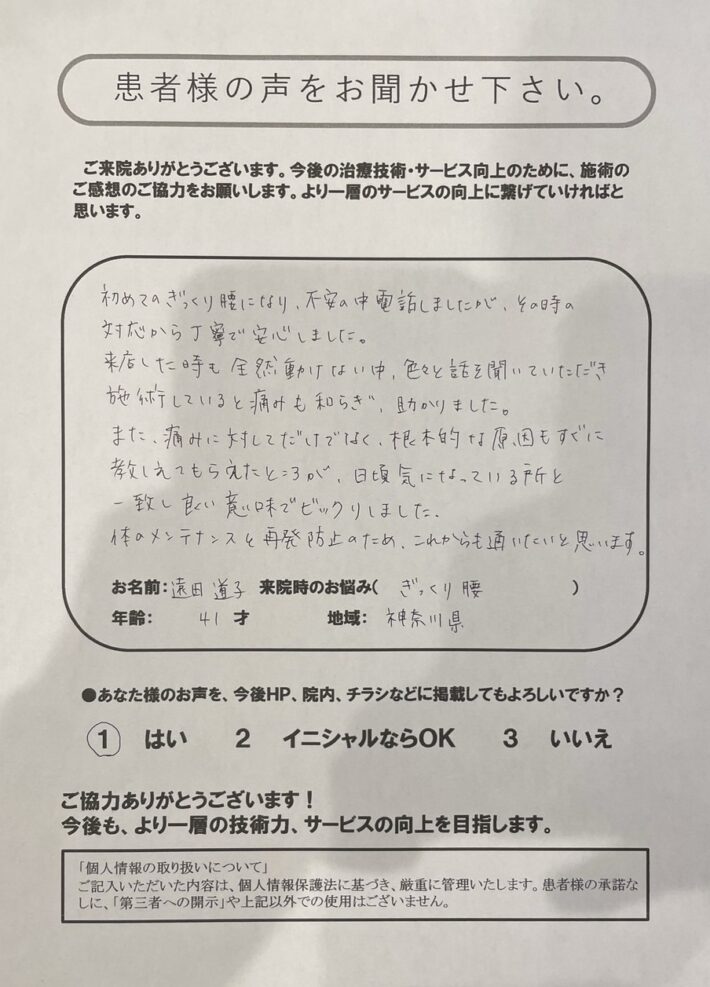 患者様の声をお聞かせ下さい。
ご来院ありがとうございます。今後の治療技術・サービス向上のために、施術の
ご感想のご協力をお願いします。より一層のサービスの向上に繋げていければと
思います。
初めてのぎっくり腰になり、不安の中電話しましたが、その時の
対応から丁寧で安心しました。
来店した時も全然動けない中、色々と話を聞いていただき
施術していると痛みも和らぎ、助かりました。
また、痛みに対してだけでなく、根本的な原因もすぐに
教しえてもらえたところが、日頃気になっている所と
一致し良い意味でビックリしました。
体のメンテナンスと再発防止のため、これからも通いたいと思います。
お名前：遠田道子 来院時のお悩み（ ぎっくり腰 ）
年齢： 41 才 地域： 神奈川県
●あなた様のお声を、今後HP、院内、チラシなどに掲載してもよろしいですか？
1 はい 2 イニシャルならOK 3 いいえ
ご協力ありがとうございます！
今後も、より一層の技術力、サービスの向上を目指します。
「個人情報の取り扱いについて」
ご記入いただいた内容は、個人情報保護法に基づき、厳重に管理いたします。患者様の承諾な
しに、「第三者への開示」や上記以外での使用はございません。